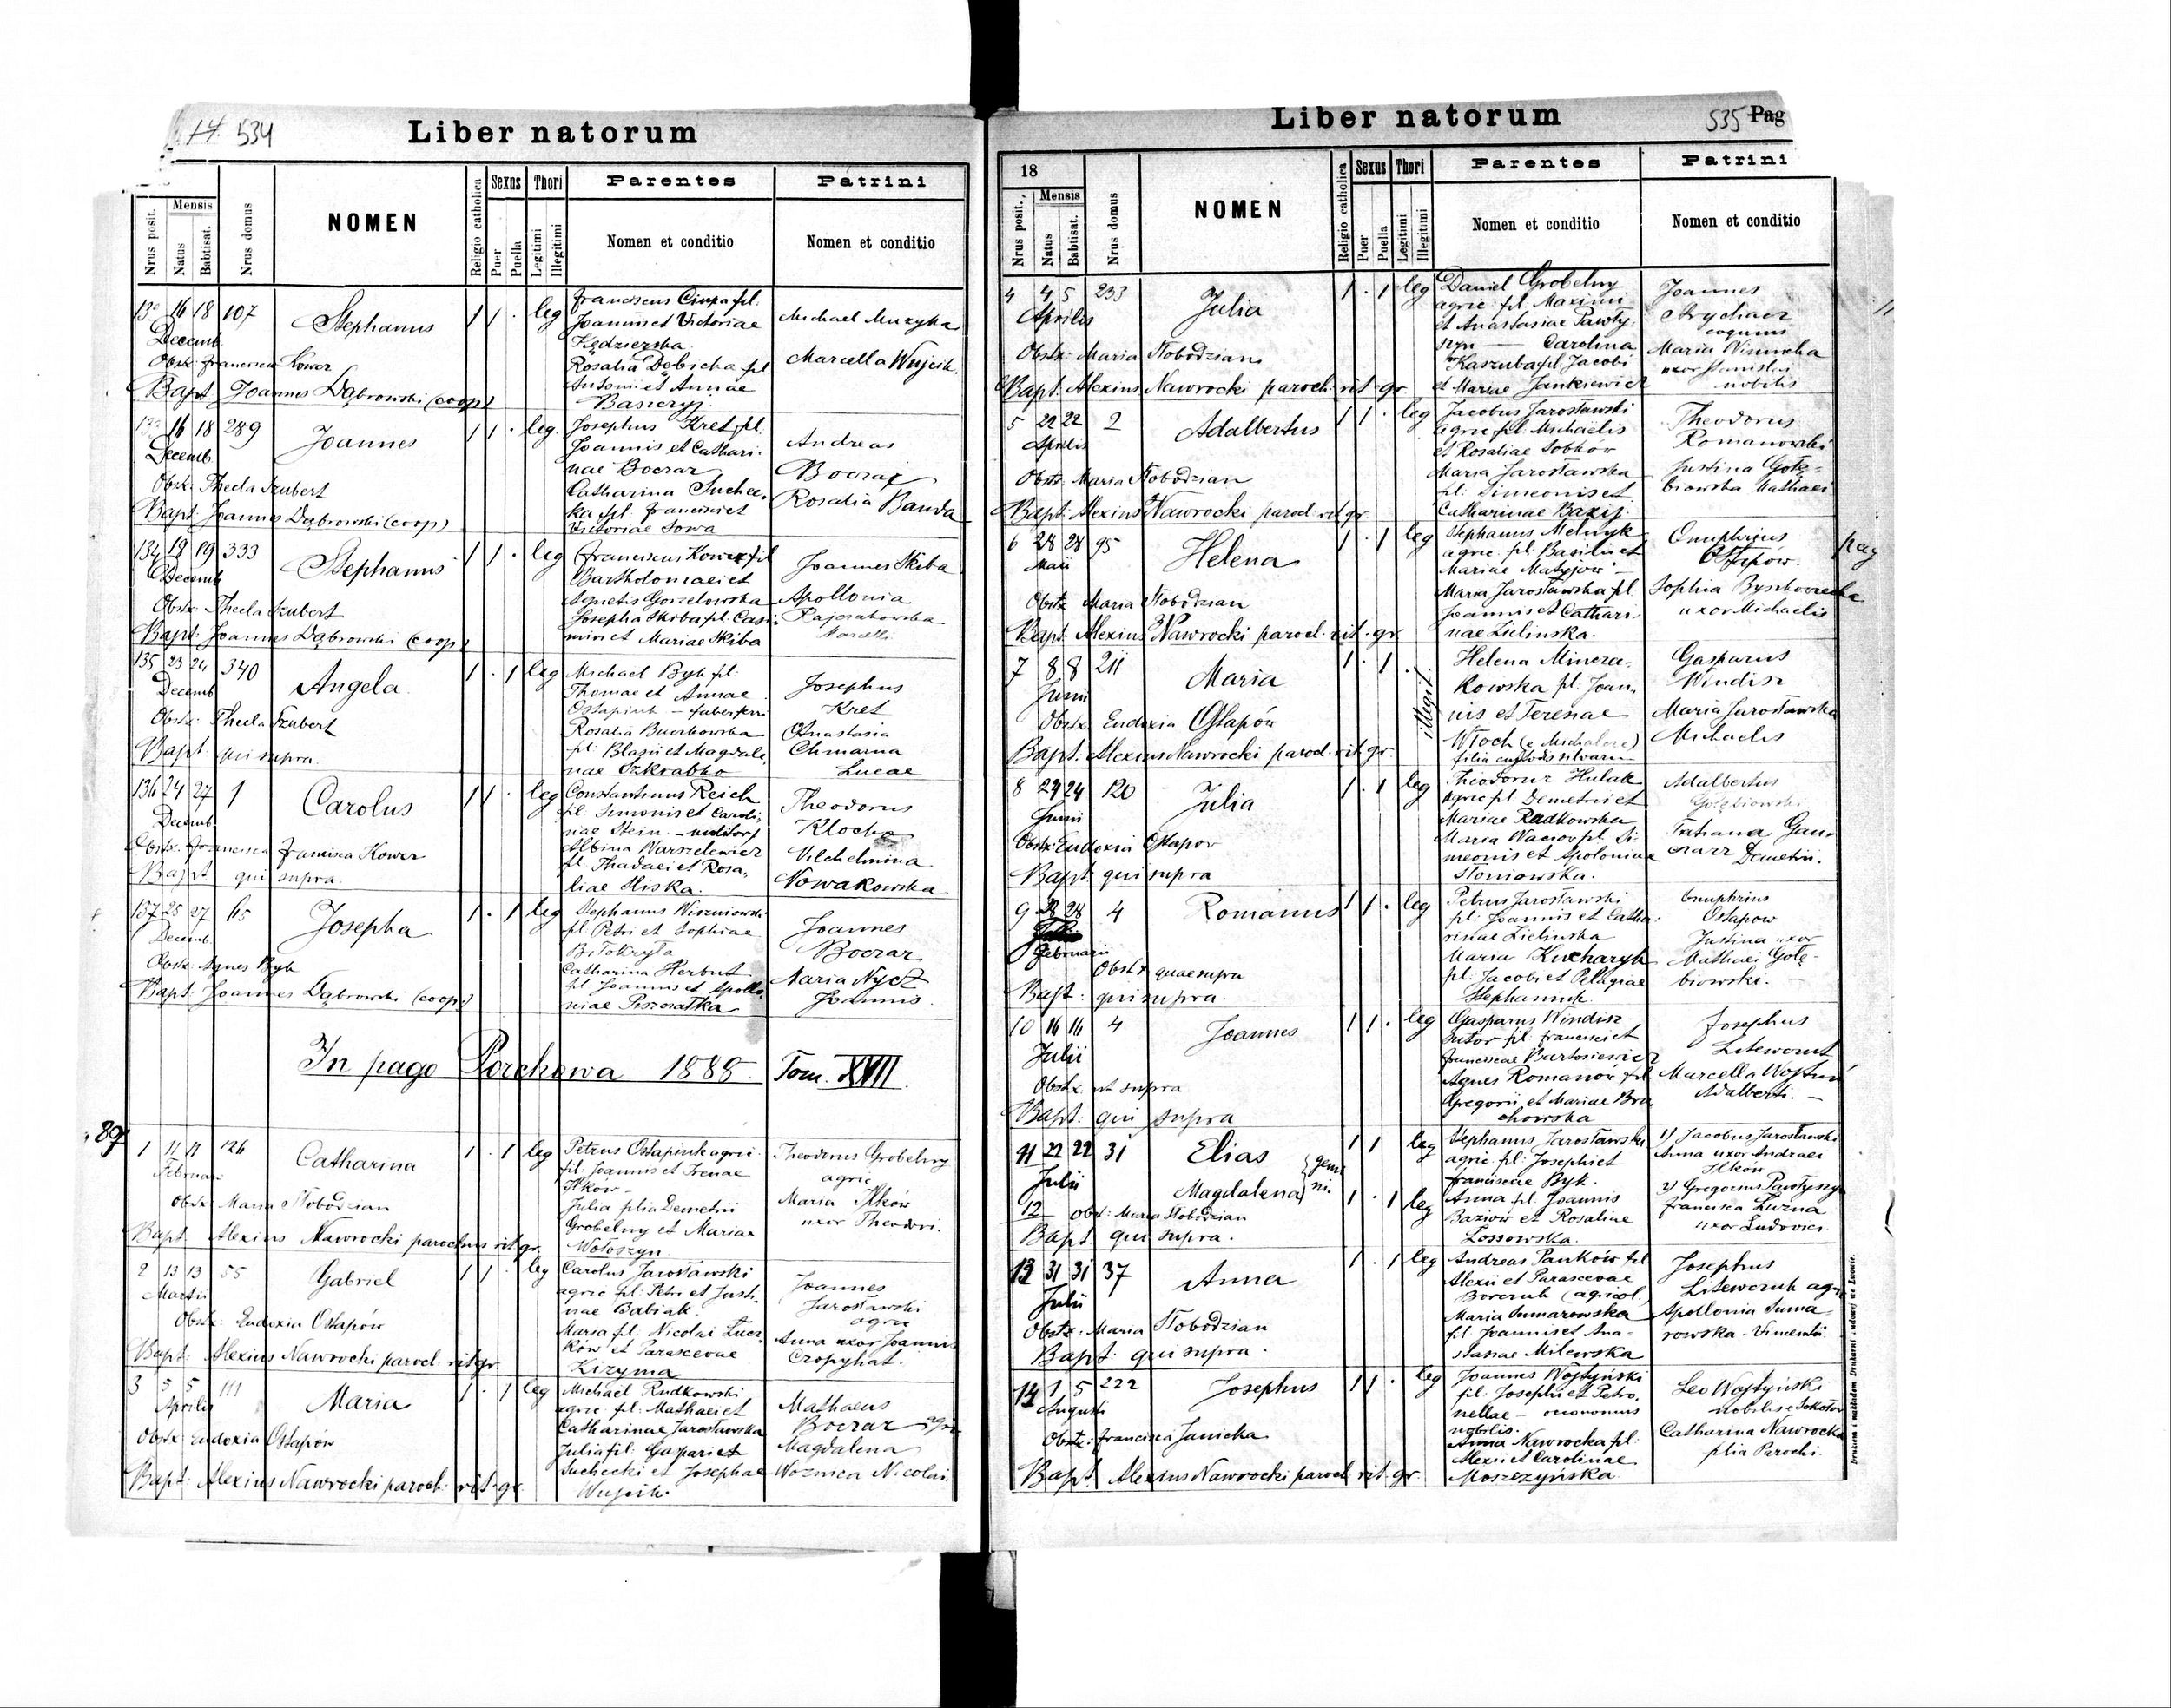 14. 534
Liber natorum
Nrus posit.
Mensis
Natus
Babtisat.
Nrus domus
NOMEN
Religio catholica
Sexus
Puer
Puella
Thori
Legitimi
Illegitimi
Parentes
Nomen et conditio
Patrini
Nomen et conditio
16 18 107
Decemb.
Stephanus
1 1 . leg
Franciscus Ciupa fil.
Joannis et Victoriae
Kędzierska
Rosalia Dębicka fil
Antoni et Annae
Michael Muzyka
Marcella Wujcik.
Obstx. Francisca Kower
Bapt. Joannes Dąbrowski (coop)
16 18 289
Decemb.
Joannes
1 1 . leg.
Josephus Kret fil.
Joannis et Cathari-
nae Boczar
Catharina Suchec-
ka fil. Francisci et
Victoriae Sowa
Andreas
Boczar
Rosalia Banda
Obstx. Thecla Szubert
Bapt. Joannes Dąbrowski (coop)
134 18 19 333
Decemb
Stephanus
1 1 . leg
Franciscus Kower fil
Bartholomaei et
Agnetis Gorzelowska
Josepha Skiba fil. Casi-
miri et Mariae Skiba
Joannes Skiba
Apollonia
Obstx. Thecla Szubert
Bapt. Joannes Dąbrowski (coop)
135 23 24 340
Decemb
Angela
1 . 1 leg
Michael Byk fil.
Thomae et Annae
Ostapiuk - faber ferri
Rosalia Buczkowska
fil. Blasii et Magdale
nae Szkrabko
Josephus
Kret
Anastasia
Chmarna
Lucae
Obstx. Thecla Szubert
Bapt. qui supra.
136 24 27 1
Decemb.
Carolus
1 1 . leg
Constantinus Reich
fil. Simonis et Caroli-
nae Stein
Albina Warszelewicz
fil. Thadaei et Rosa-
liae Sliska.
Theodorus
Klocho
Vilchelmina
Nowakowska
Obstx. Francisca Kower
Bapt. qui supra.
137 25 27 65
Decemb.
Josepha
1 . 1 leg
Stephanus Wiszniowski
fil. Petri et Sophiae
Białokryta
Catharina Herbut
fil Joannis et Apollo-
niae Piszczatka
Joannes
Boczar
Maria Nycz
Joannis.
Obstx. Agnes Byk
Bapt. Joannes Dąbrowski (coop.)
In pago Porchowa 1888. Tom. XVII.
89
1 11 11 126
Februar.
Catharina
1 . 1 leg
Petrus Ostapiuk agric.
fil. Joannis et Irenae
Ilków -
Julia filia Demetrii
Grobelny et Mariae
Wołoszyn
Theodorus Grobelny
agric
Maria Ilków
uxor Theodori.
Obstx. Maria Słobodzian
Bapt. Alexius Nawrocki parochus rit. gr.
2 13 13 55
Martii
Gabriel
1 1 . leg
Carolus Jarosławski
agric fil. Petri et Justi-
nae Babiak.
Maria fil. Nicolai Łucz
ków et Parascevae
Kizyma
Joannes
Jarosławski
agric
Anna uxor Joannis
Czopyhat.
Obstx. Eudoxia Ostapów
Bapt. Alexius Nawrocki paroch. rit. gr.
3 5 5 111
Aprilis
Maria
1 . 1 leg
Michael Rudkowski
agric. fil. Mathaei et
Catharinae Jarosławska
Julia fil. Gaspari et
Suchecki et Josephae
Wujcik.
Mathaeus
Boczar agric
Magdalena
Woznica Nicolai.
Obstx. Eudoxia Ostapów
Bapt. Alexius Nawrocki paroch. rit. gr.
Liber natorum
535 Pag
18
Nrus posit.
Mensis
Natus
Babtisat.
Nrus domus
NOMEN
Religio catholica
Sexus
Puer
Puella
Thori
Legitimi
Illegitimi
Parentes
Nomen et conditio
Patrini
Nomen et conditio
4 4 5 233
Aprilis
Julia
1 . 1 leg
Daniel Grobelny
agric. fil. Maximi
et Anastasiae Pawły-
szyn - Carolina
Kaszuba fil Jacobi
et Mariae Jankiewicz
Joannes
Maria
uxor Stanislai
nobilis
Obstx. Maria Słobodzian
Bapt. Alexius Nawrocki paroch. rit. gr.
5 22 22 2
Aprilis
Adalbertus
1 1 . leg
Jacobus Jarosławski
agric fil. Michaelis
et Rosaliae Sobków
Maria Jarosławska
fil. Simeonis et
Catharinae Bazij.
Theodorus
Romanowski
Justina Gołę-
biowska Mathaei
Obstx. Maria Słobodzian
Bapt. Alexius Nawrocki paroch. rit. gr.
6 28 28 95
Maii
Helena
1 . 1 leg
Stephanus Melnyk
agric. fil. Basilii et
Mariae Matyjów -
Maria Jarosławska fil.
Joannis et Cathari
nae Zielinska.
Onuphrius
Ostapów.
Sophia
uxor Michaelis
pag
Obstx. Maria Słobodzian
Bapt. Alexius Nawrocki paroch. rit. gr.
7 8 8 211
Junii
Maria
1 . 1 .
illegit.
Helena Mincza-
kowska fil. Joan-
nis et Teresae
Włoch
filia custodis silvarum
Gasparus
Windisz
Maria Jarosławska
Michaelis
Obstx. Eudoxia Ostapów
Bapt. Alexius Nawrocki paroch. rit. gr.
8 24 24 120
Junii
Julia
1 . 1 leg
Theodorus Hulak
agric fil Demetrii et
Mariae Radkowska
Maria Waciow fil. Si-
meonis et Apoloniae
Słoniowska.
Adalbertus
Gołębiowski
Tatiana Gon-
czarz Demetrii.
Obstx. Eudoxia Ostapow
Bapt. qui supra
9 28 28 4
Februarii
Romanus
1 1 . leg
Petrus Jarosławski
fil. Joannis et Catha-
rinae Zielinska
Maria Kucharyk
fil. Jacobi et Pelagiae
Stephaniuk.
Onuphrius
Ostapow
Justina uxor
Mathaei Gołę-
biowski.
Obstx quae supra
Bapt. qui supra.
10 16 16 4
Julii
Joannes
1 1 . leg
Gasparus Windisz
sutor fil. Francisci et
Franciscae Bartosiewicz
Agnes Romanów fil
Gregorii et Mariae Bru-
chowska
Josephus
Litewczuk
Marcella
Adalberti. -
Obstx. ut supra
Bapt. qui supra
11 22 22 31
Julii
Elias
Magdalena
gemi
ni.
1 1 leg
1 . 1 leg
Stephanus Jarosławski
agric. fil. Josephi et
Franciscae Byk.
Anna fil. Joannis
Baziów et Rosaliae
Lossowska.
1) Jacobus Jarosławski
Anna uxor Andreae
Ilków
2) Gregorius Pawłyszyn
Francisca Luzna
uxor Ludovici
12
Obst. Maria Słobodzian
Bapt. qui supra.
13 31 31 37
Julii
Anna
1 . 1 leg
Andreas Panków fil
Alexii et Parascevae
Borczuk (agricol.)
Maria Sumarowska
fil. Joannis et Ana-
stasiae Milewska
Josephus
Litewczuk agr.
Apollonia Suma-
rowska - Vincentii
Obstx. Maria Słobodzian
Bapt. qui supra.
14 1 5 222
Augusti
Josephus
1 1 . leg
Joannes Wojtyński
fil. Josephi et Petro-
nellae - oeconomus
nobilis.
Anna Nawrocka fil.
Alexii et Carolinae
Moszczyńska
Leo Wojtyński
nobilis e Sokołow
Catharina Nawrocka
filia Parochi.
Obstx. Francisca Janicka
Bapt. Alexius Nawrocki paroch. rit. gr.